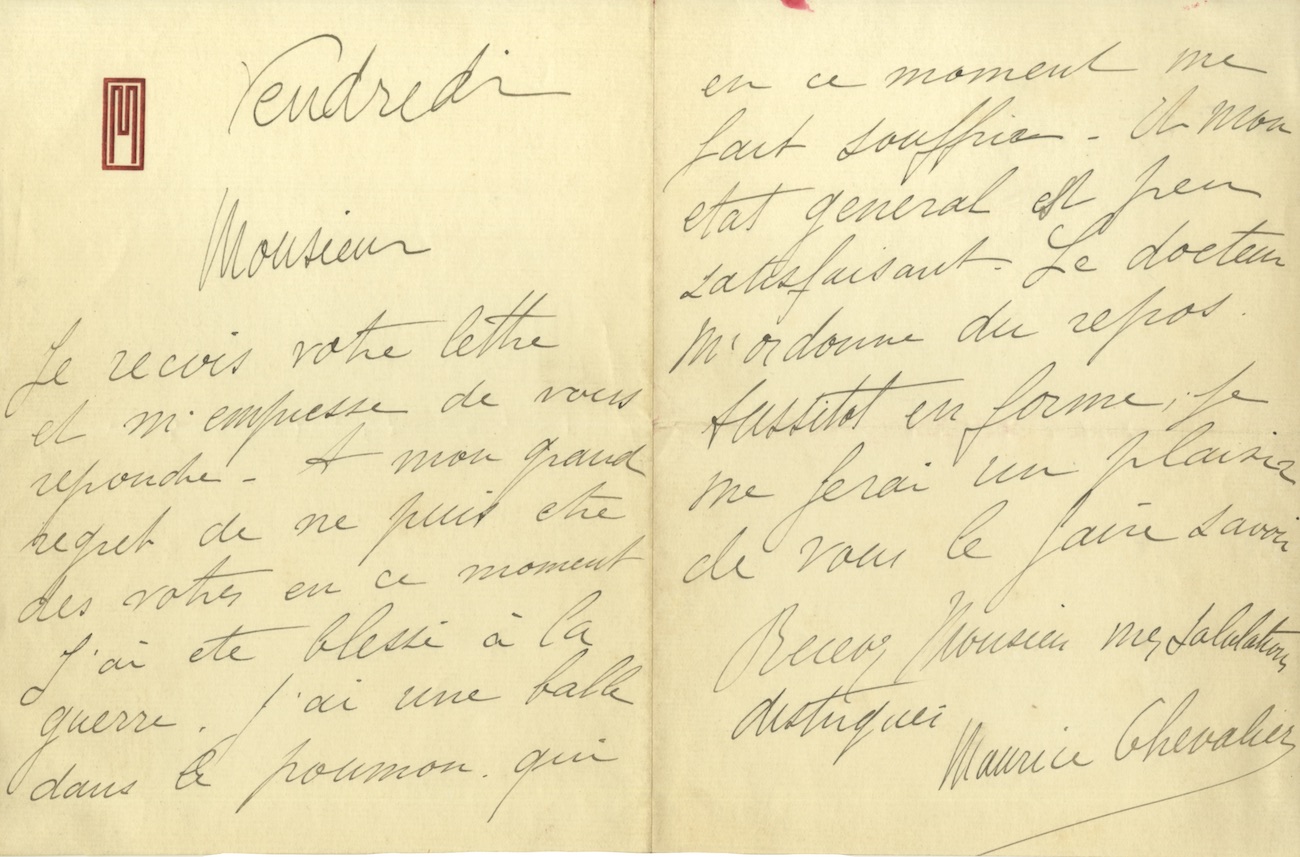 Vendredi
Monsieur
Je recois votre lettre
et m'empresse de vous
repondre - A mon grand
regret de ne puis etre
des votres en ce moment
J'ai ete blessé à la
guerre. J'ai une balle
dans le poumon. qui
en ce moment me
fait souffrir - Et mon
etat general est peu
satisfaisant - Le docteur
m'ordonne du repos.
Aussitot en forme, je
me ferai un plaisir
de vous le faire savoir
Recevez Monsieur mes salutations
Maurice Chevalier